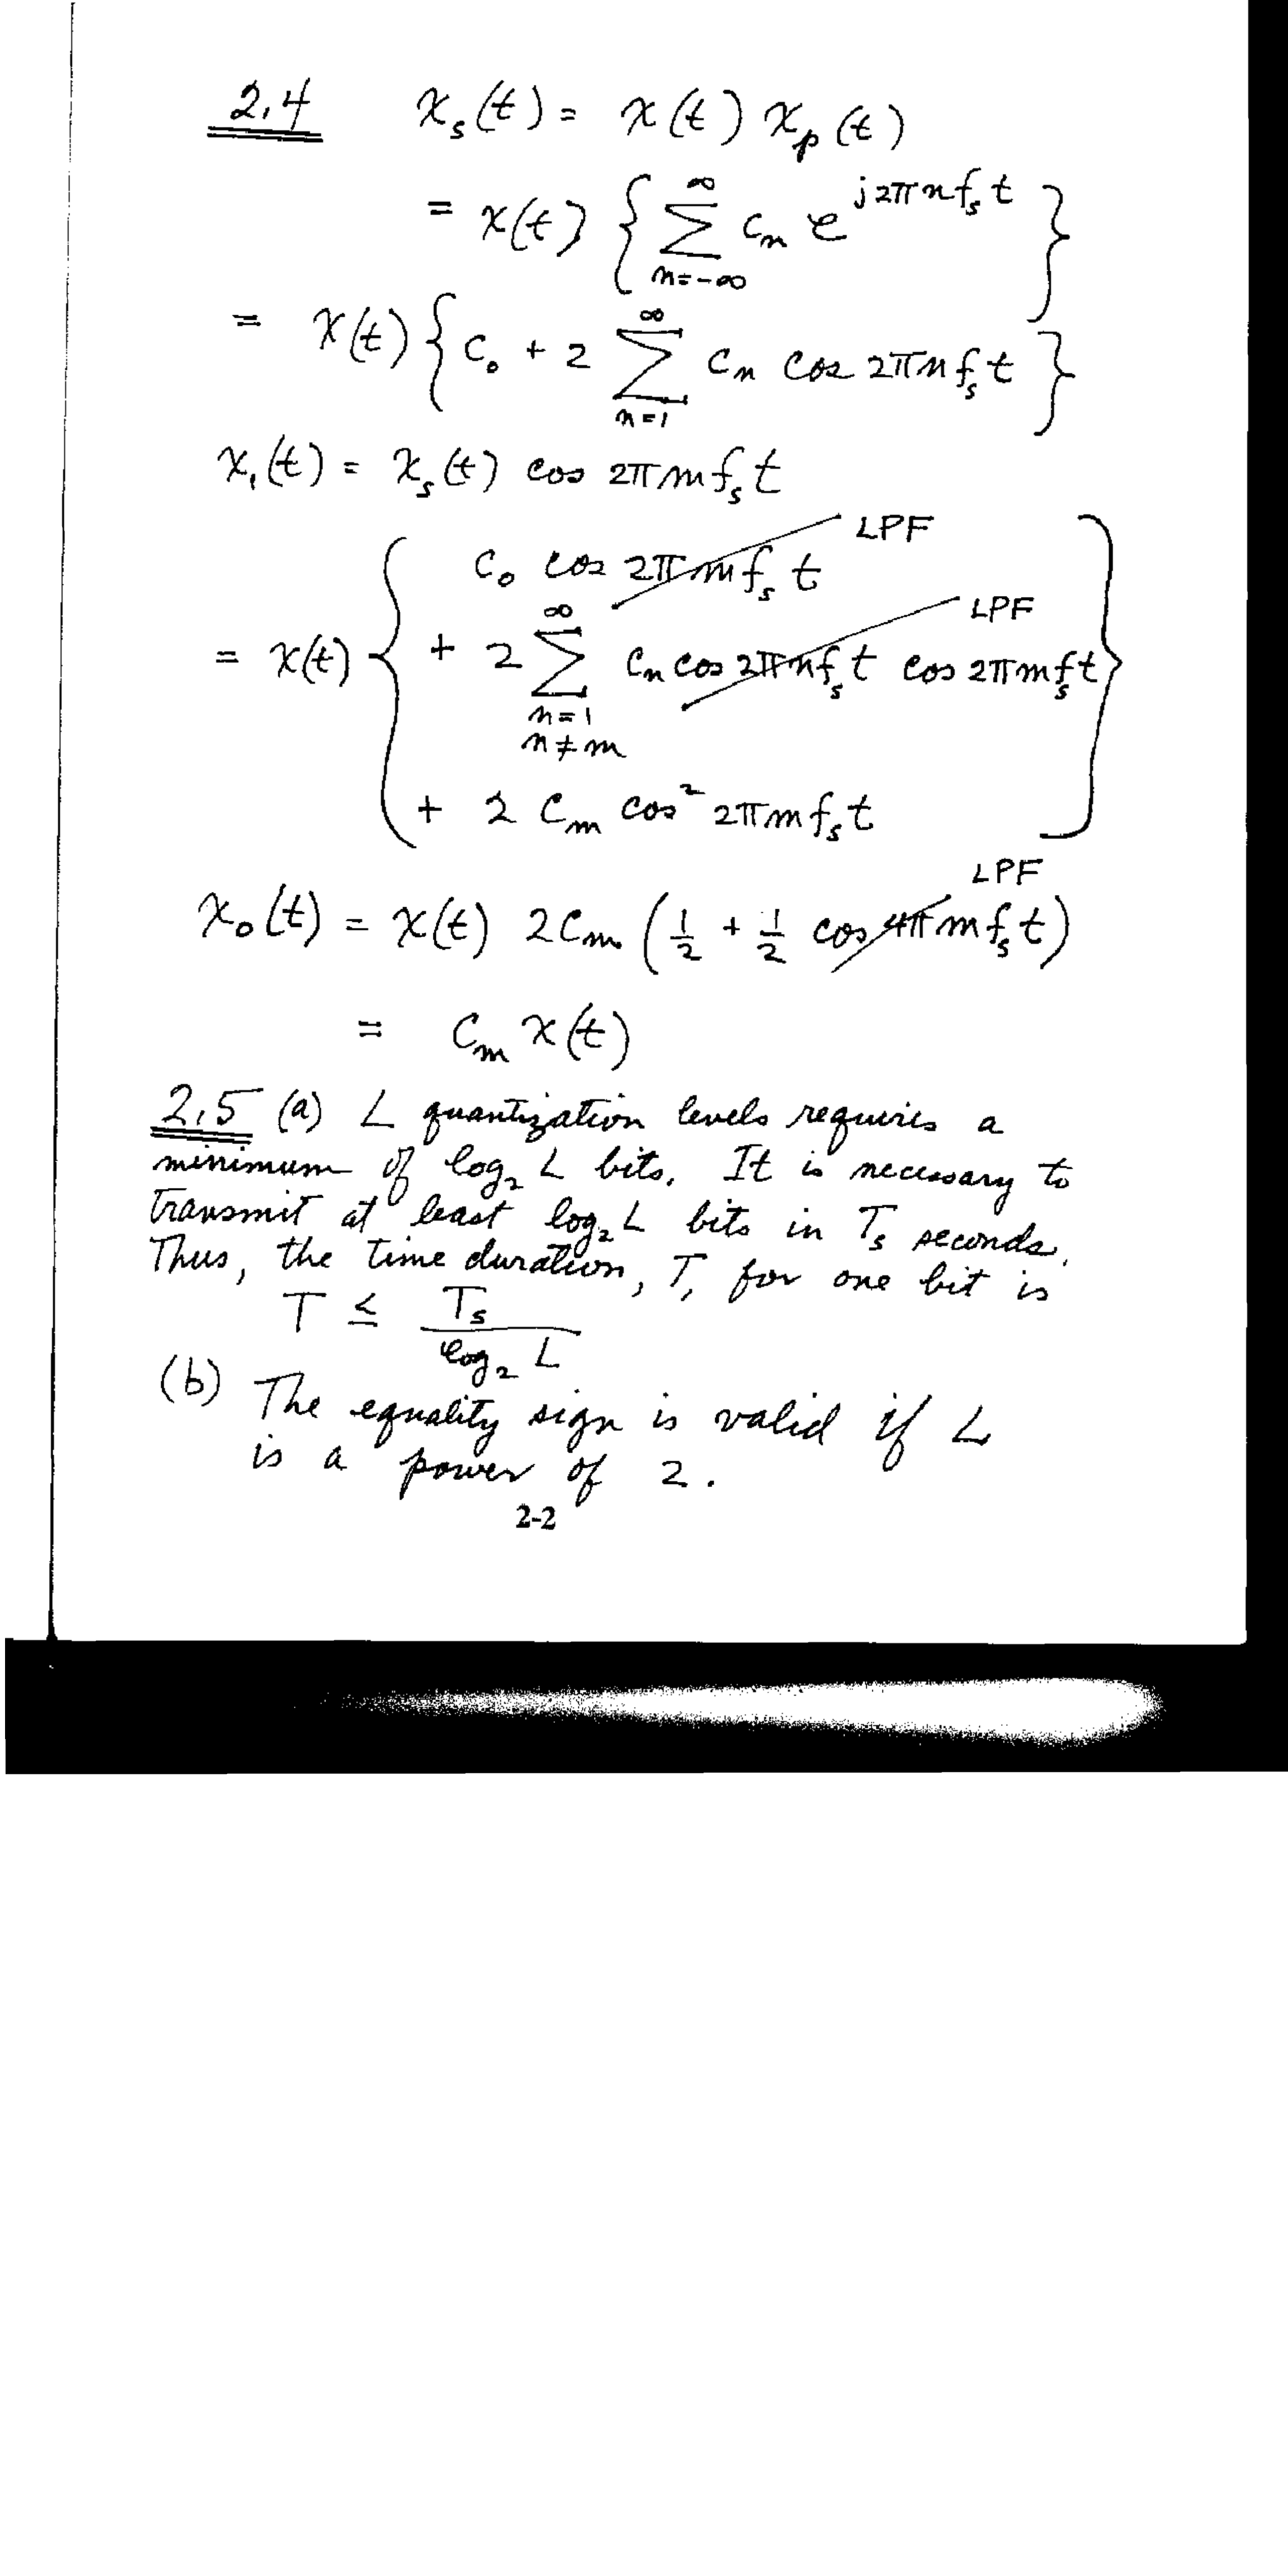 2.4 x_s(t) = x(t) x_p(t)
= x(t) { ∑_{n=-∞}^{∞} c_n e^{j2πnf_s t} }
= x(t) { c_0 + 2 ∑_{n=1}^{∞} c_n cos 2πnf_s t }
x_1(t) = x_s(t) cos 2πmf_s t
c_0 cos 2πmf_s t LPF
= x(t) { + 2 ∑_{n=1, n≠m}^{∞} c_n cos 2πnf_s t cos 2πmf_s t } LPF
+ 2 c_m cos² 2πmf_s t
x_0(t) = x(t) 2c_m (1/2 + 1/2 cos 4πmf_s t) LPF
= c_m x(t)
2.5 (a) L quantization levels requires a
minimum of log_2 L bits. It is necessary to
transmit at least log_2 L bits in T_s seconds.
Thus, the time duration, T, for one bit is
T ≤ T_s / log_2 L
(b) The equality sign is valid if L
is a power of 2.
2-2